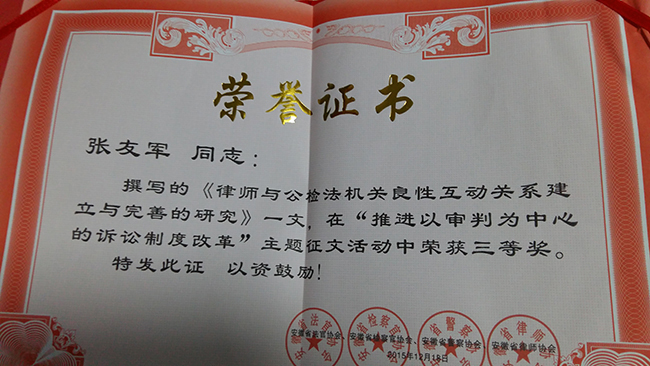 荣誉证书
张友军 同志：
撰写的《律师与公检法机关良性互动关系建
立与完善的研究》一文，在“推进以审判为中心
的诉讼制度改革”主题征文活动中荣获三等奖。
特发此证 以资鼓励！
安徽省法官协会、安徽省检察官协会、安徽省警察协会、安徽省律师协会
2015年12月18日